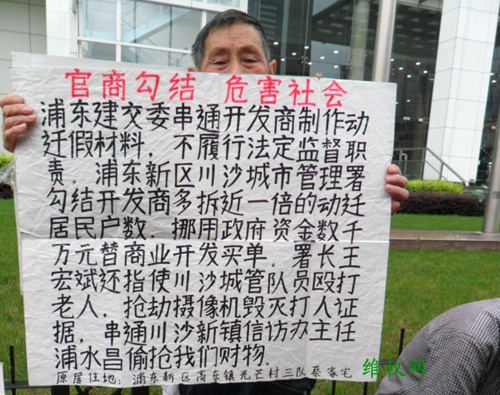 官商勾结 危害社会
浦东建交委串通开发商制作动
迁假材料，不履行法定监督职
责，浦东新区川沙城市管理署
勾结开发商多拆近一倍的动迁
居民户数，挪用政府资金数千
万元替商业开发买单。署长王
宏斌还指使川沙城管队员殴打
老人，抢劫摄像机毁灭打人证
据，串通川沙新镇信访办主任
浦水昌偷抢我们财物.
原居住地：浦东新区高东镇光芒村三队蔡家宅
维权网